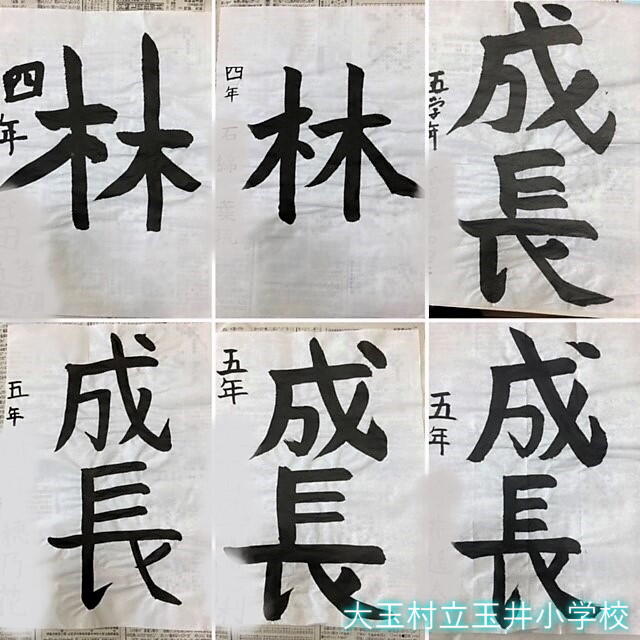 四年
林
四年
林
五学年
成長
五年
成長
五年
成長
五年
成長
大玉村立玉井小学校